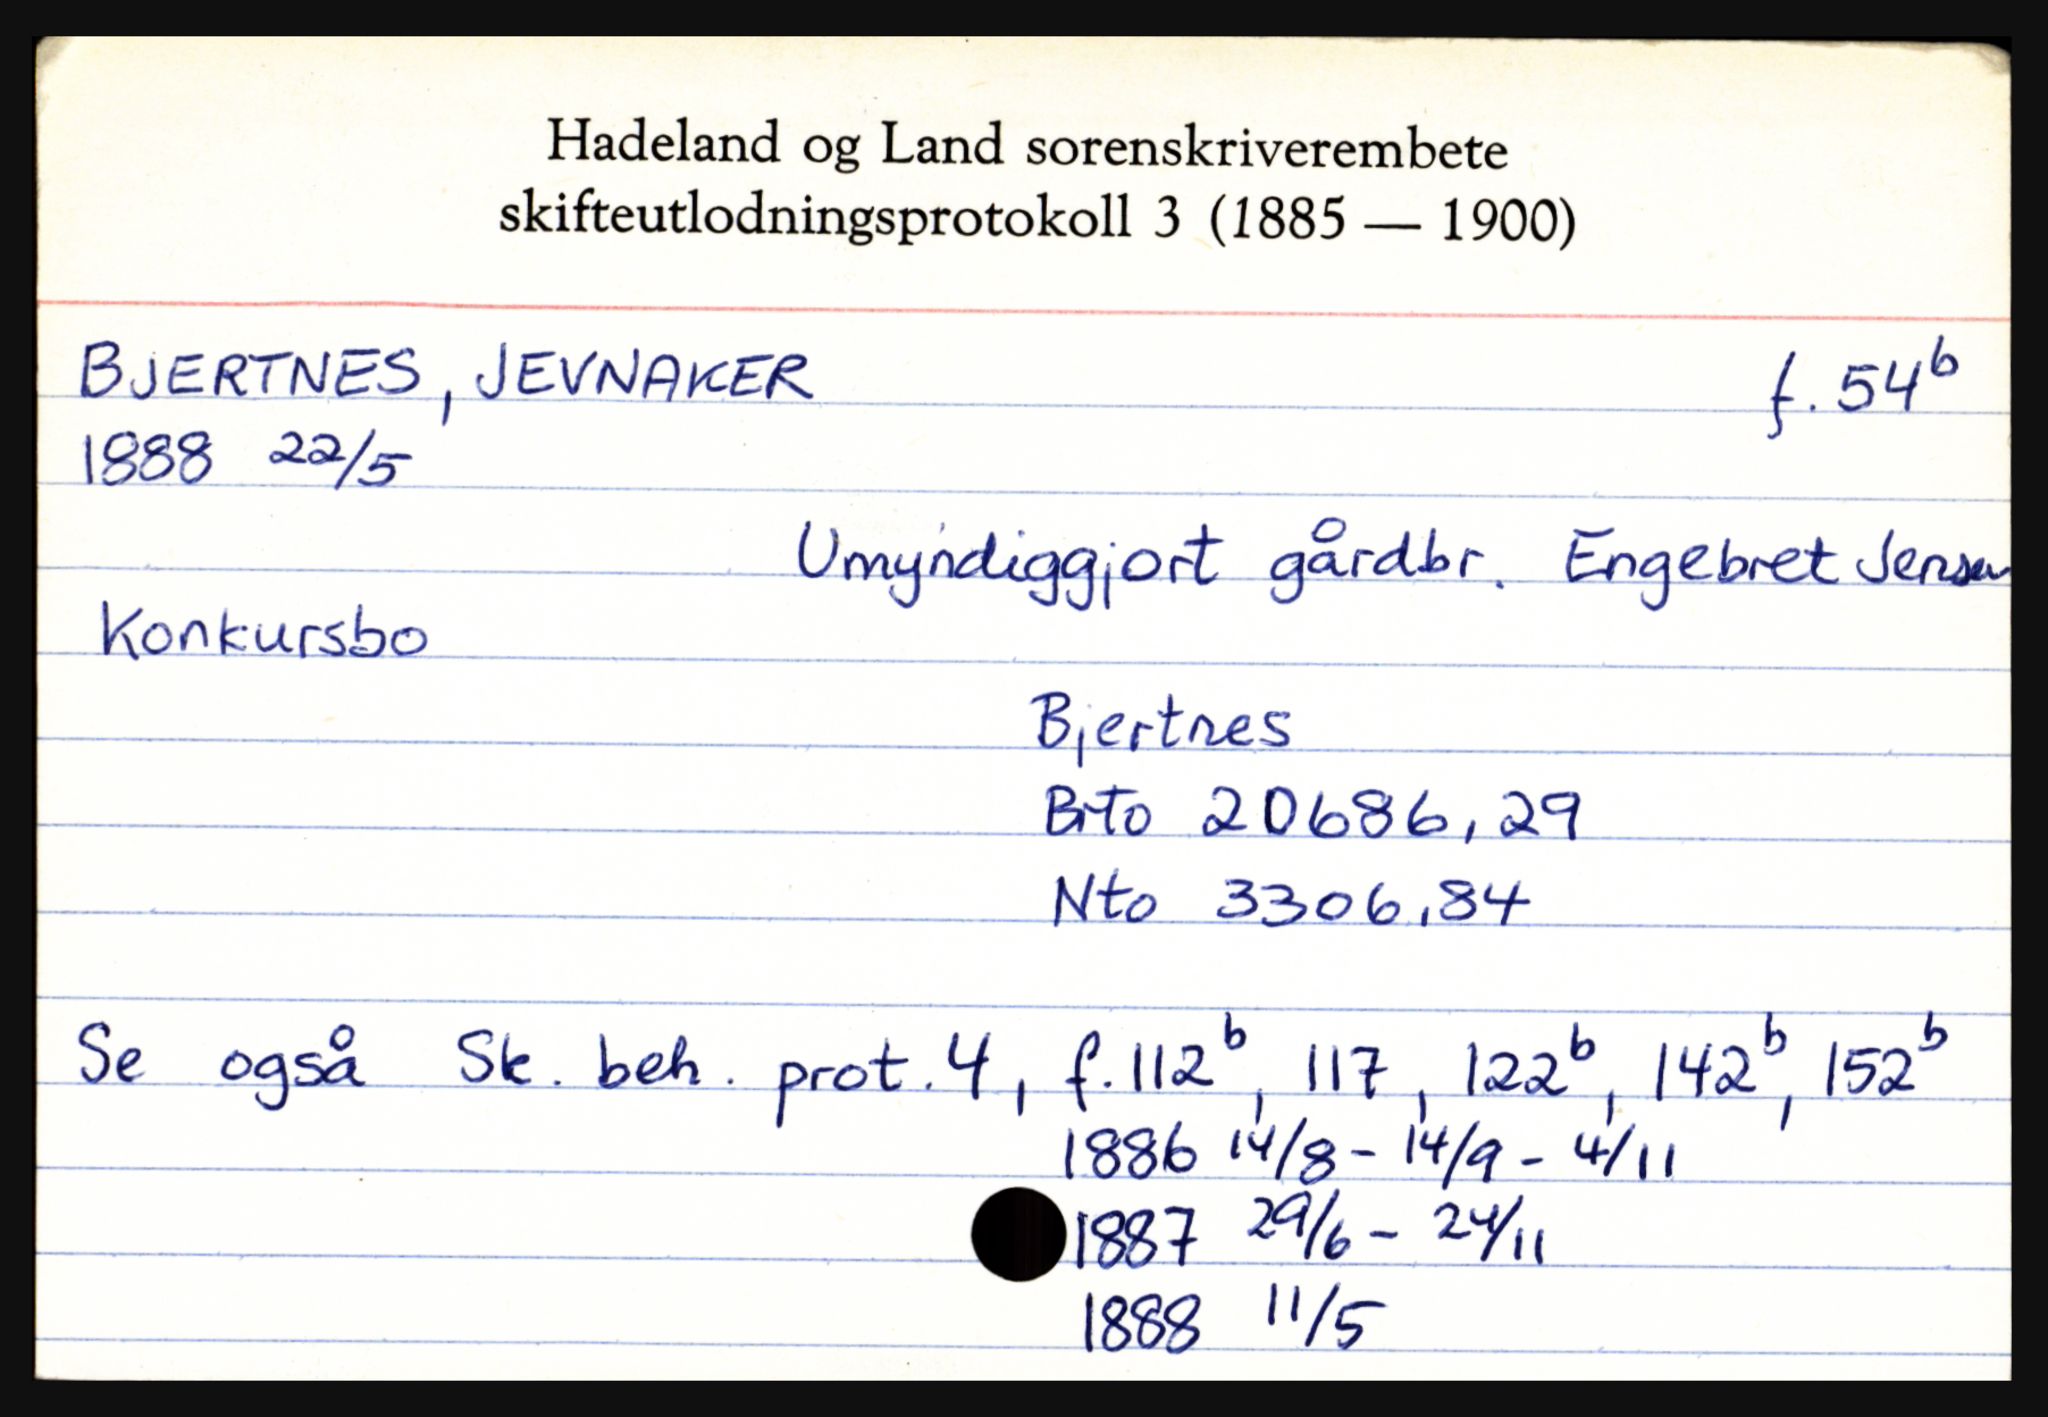 Hadeland og Land sorenskriverembete
skifteutlodningsprotokoll 3 (1885 — 1900)
BJERTNES, JEVNAKER f. 54ᵇ
1888 22/5
Umyndiggjort gårdbr. Engebret Jensen
Konkursbo
Bjertnes
Brto 20686,29
Nto 3306,84
Se også Sk. beh. prot. 4, f. 112ᵇ, 117, 122ᵇ, 142ᵇ, 152ᵇ
1886 14/8 - 14/9 - 4/11
1887 29/6 - 24/11
1888 11/5